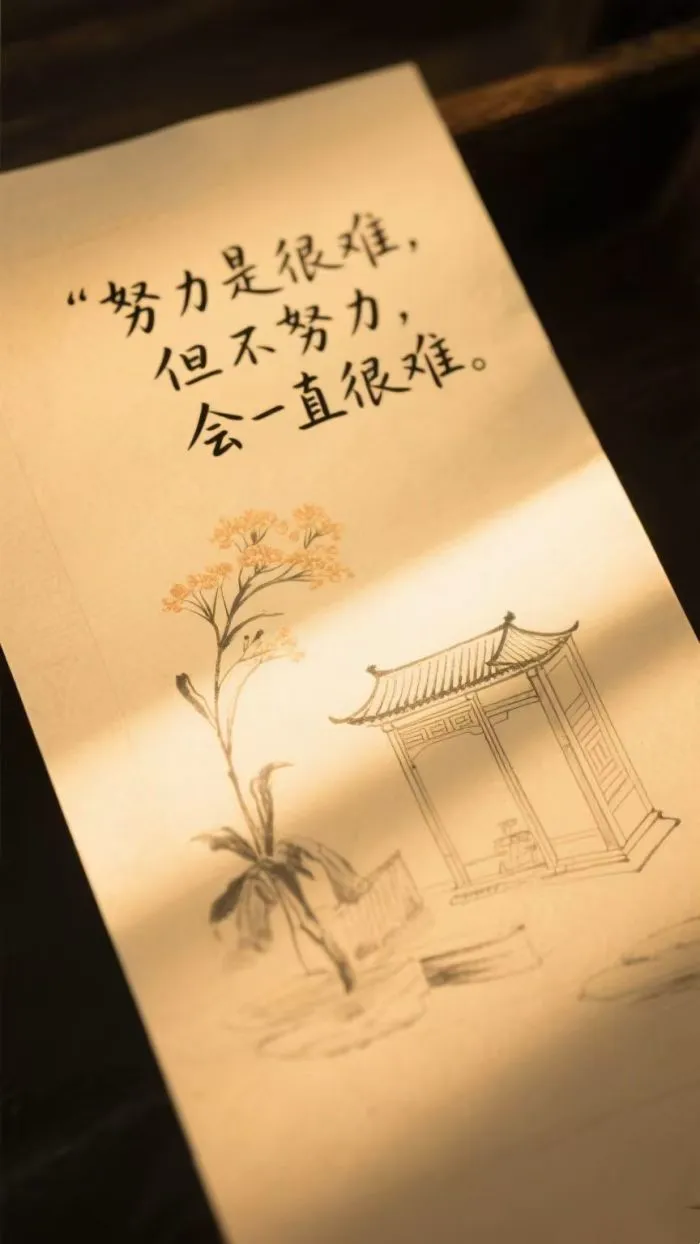 “努力是很难，
但不努力，
会一直很难。